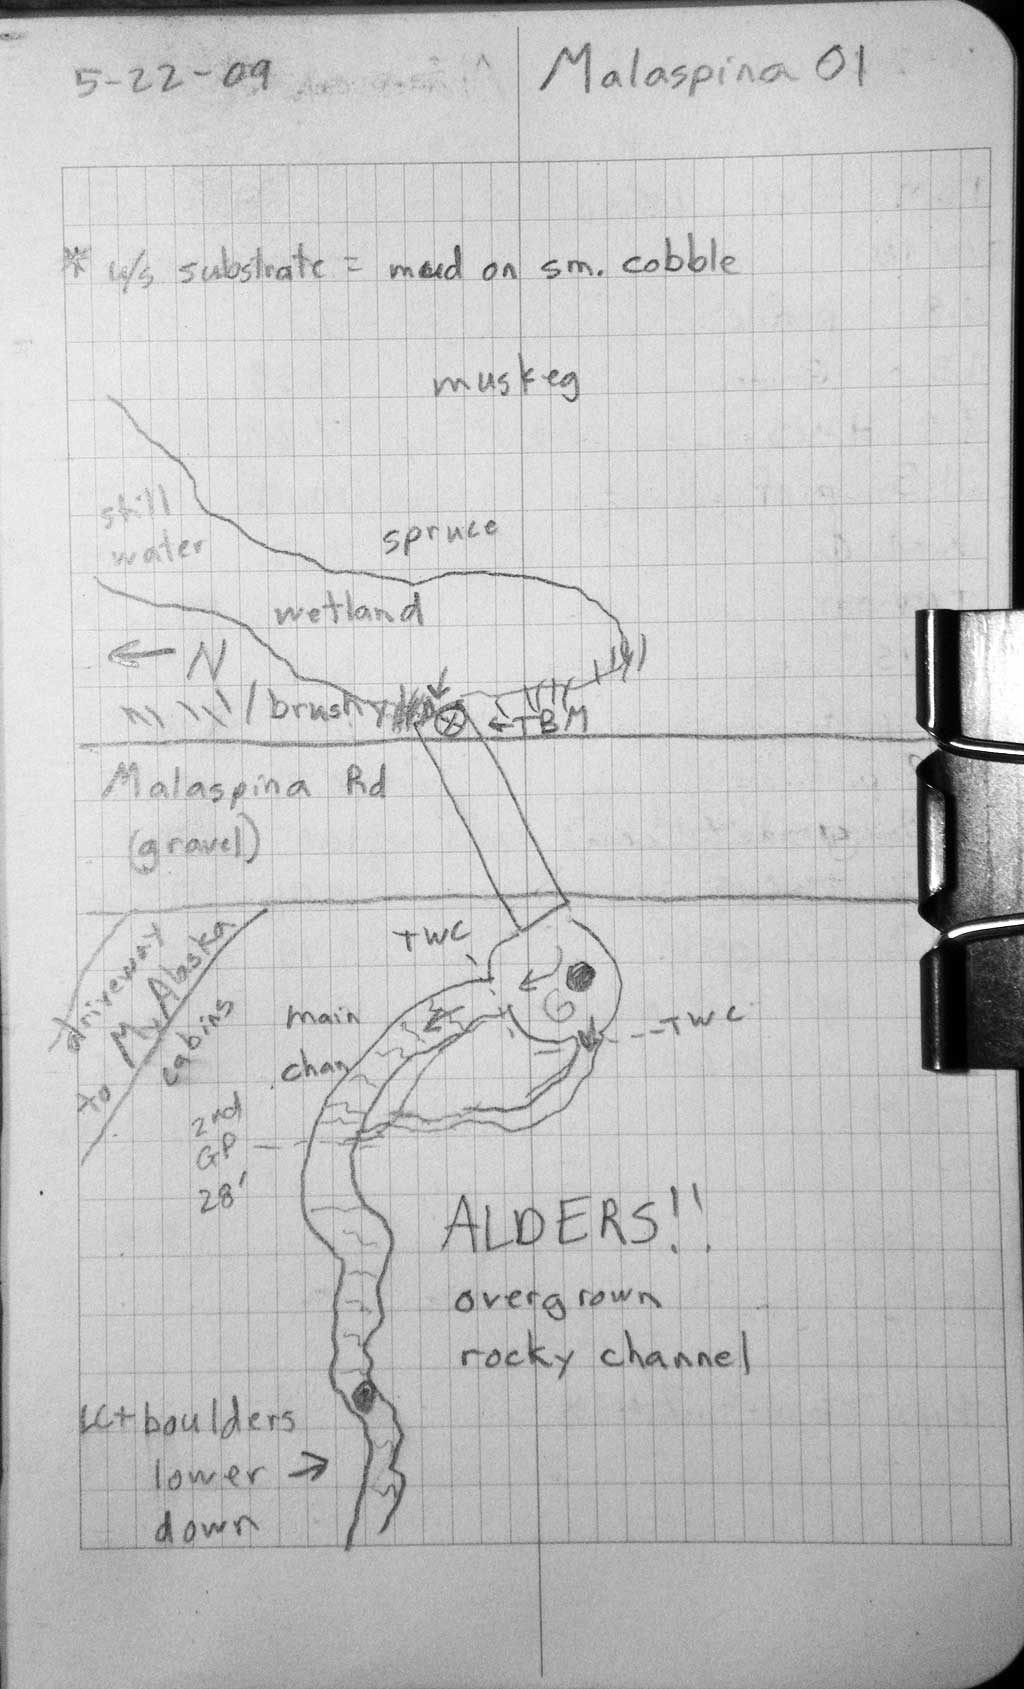 5-22-09
Malaspina 01
* u/s substrate = mud on sm. cobble
muskeg
still
water
spruce
wetland
← N
brushy
← TBM
Malaspina Rd
(gravel)
driveway
to My Alaska
cabins
TWC
main
chan
TWC
2nd
GP
28'
ALDERS!!
overgrown
rocky channel
LC+boulders
lower →
down